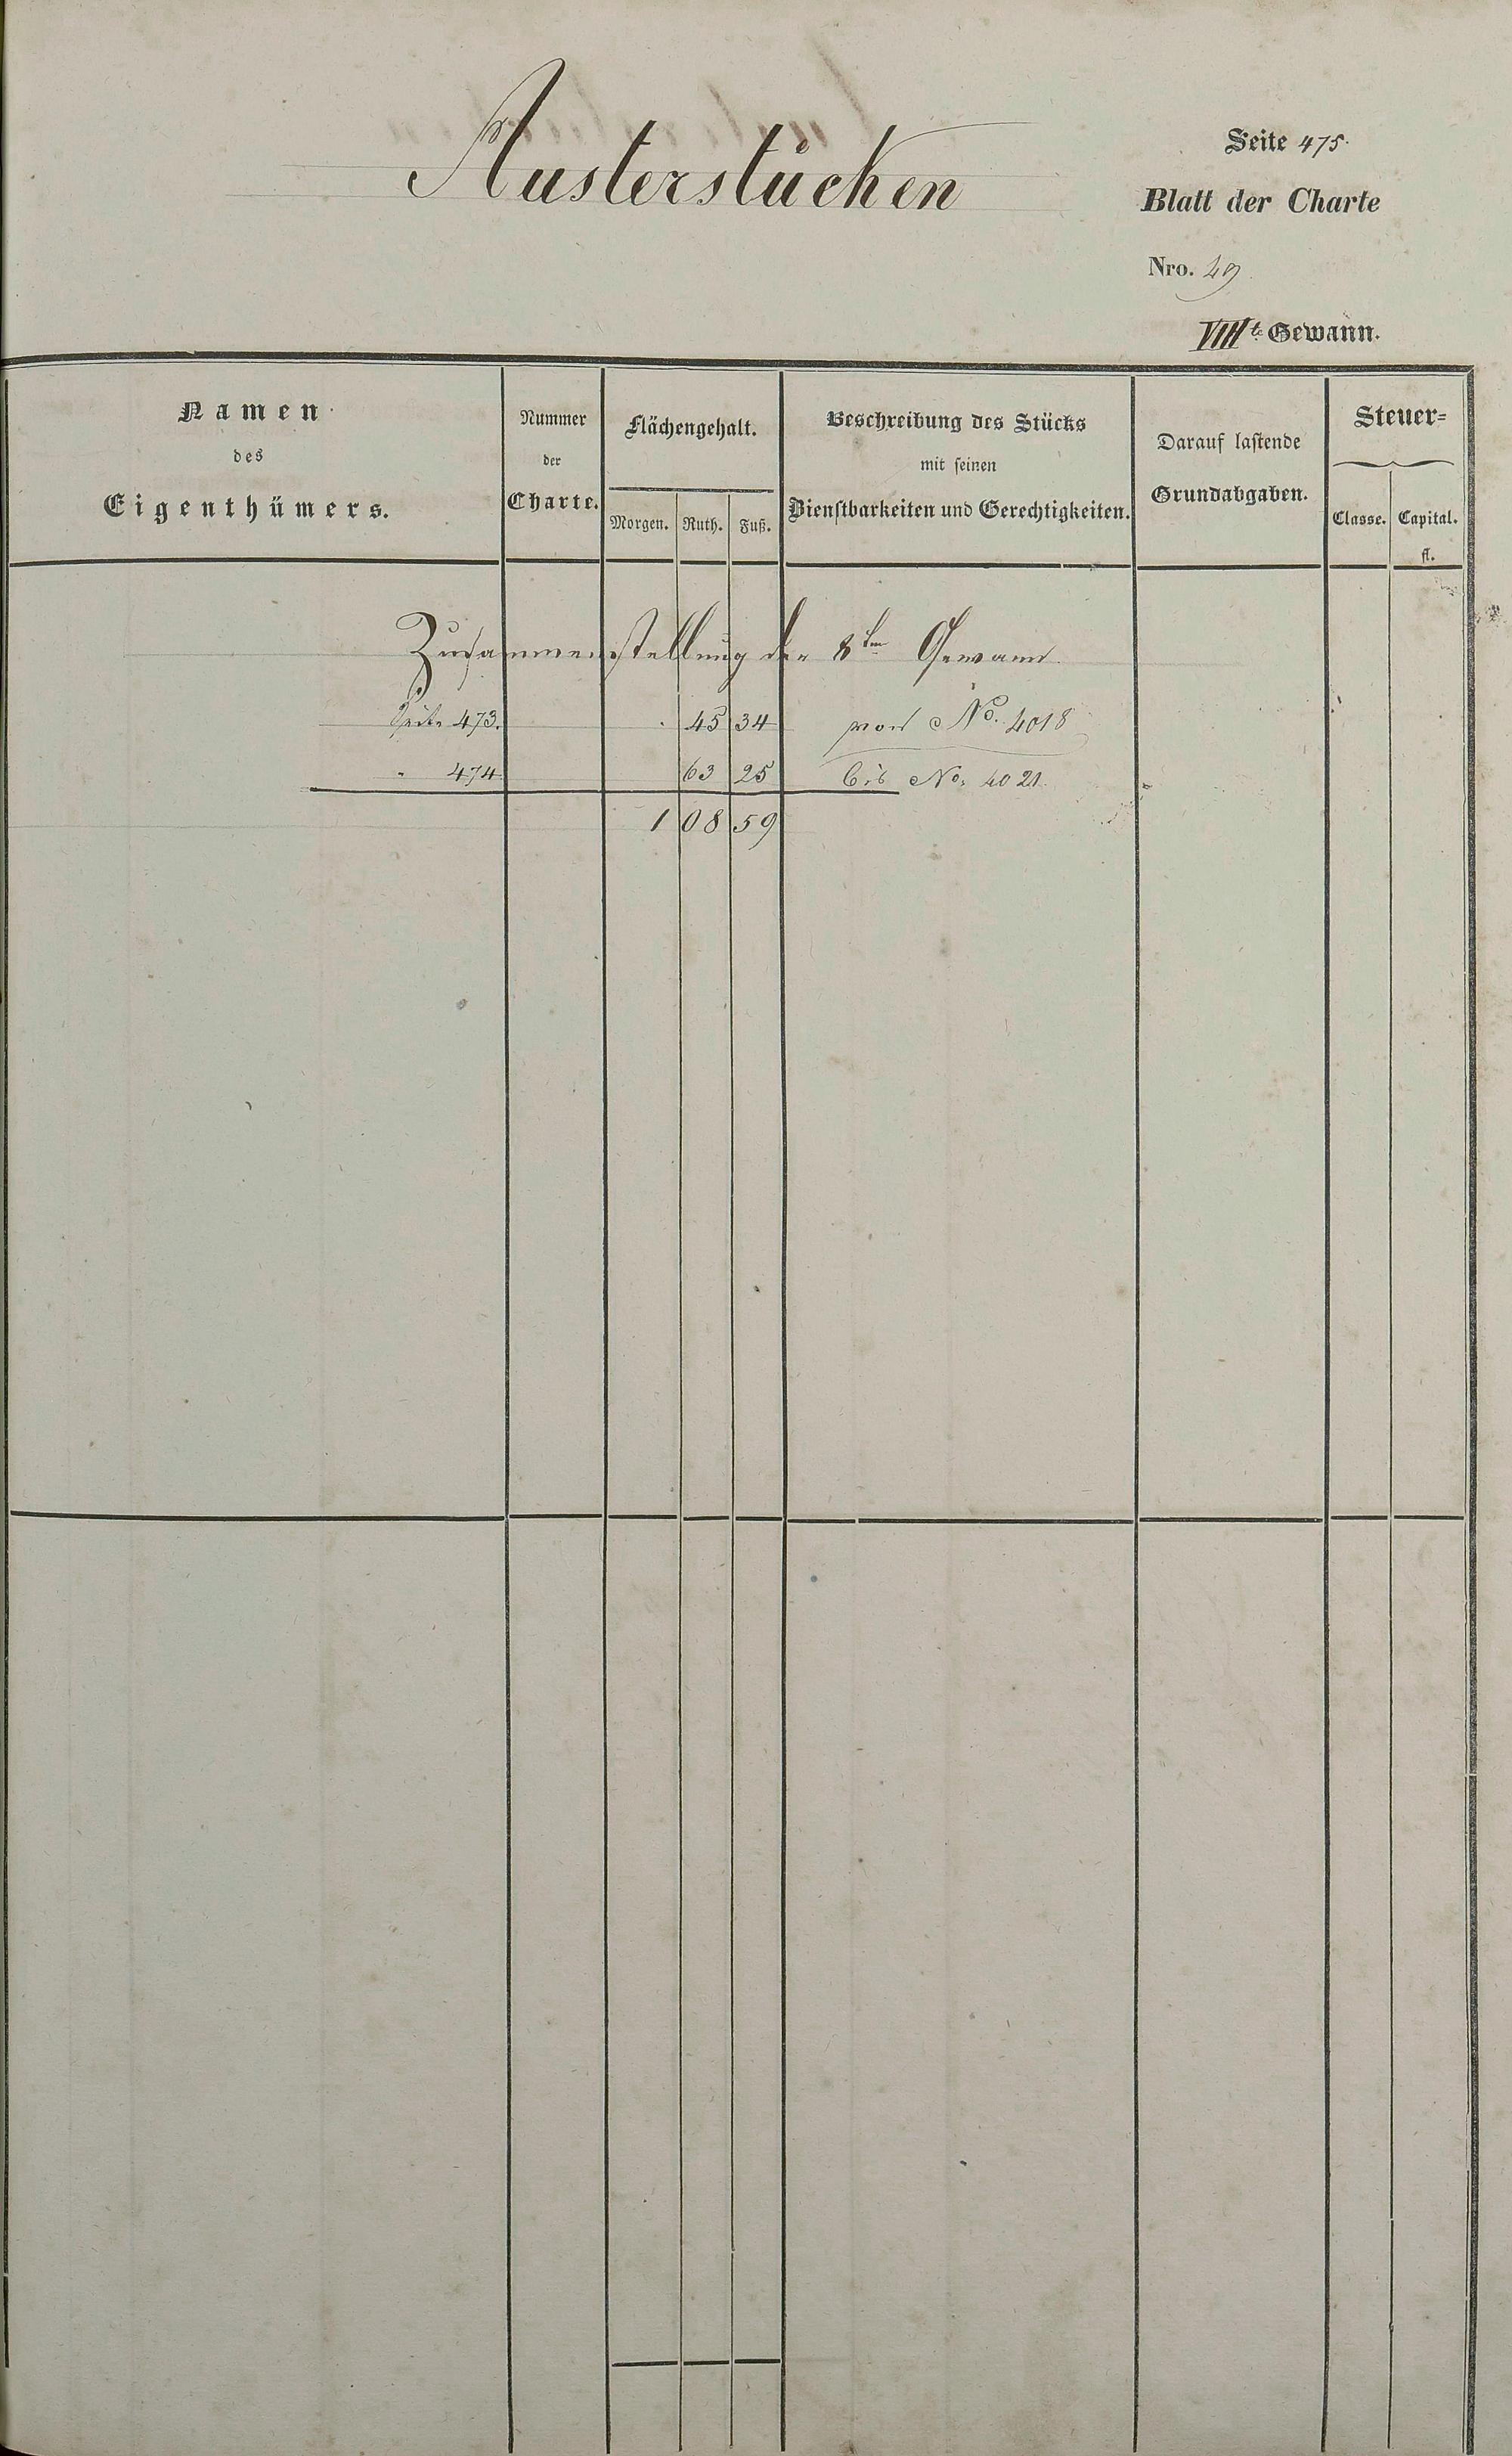 Austerstücken
Seite 475.
Blatt der Charte
Nro. 49.
VIIIt. Gewann.
Namen
des
Eigenthümers.
Nummer
der
Charte.
Flächengehalt.
Morgen. Ruth. Fuß.
Beschreibung des Stücks
mit seinen
Dienstbarkeiten und Gerechtigkeiten.
Darauf lastende
Grundabgaben.
Steuer=
Classe. Capital.
fl.
Zusammenstellung der 8ten Gewann.
Seite 473. . 45 34 von No. 4018
" 474. 63 25 bis No. 4021.
1 08 59